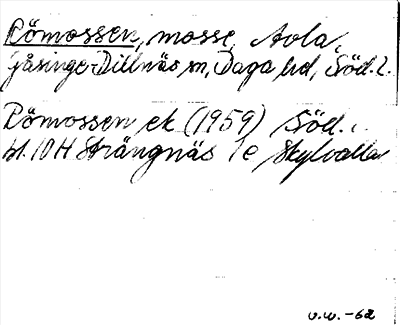 Römossen, mosse, Avla,
Gåsinge-Dillnäs sn, Daga hd, Söd. l.
Römossen ek (1959) Söd.
bl. 10H Strängnäs 1e Skylvalla
v.w.-62